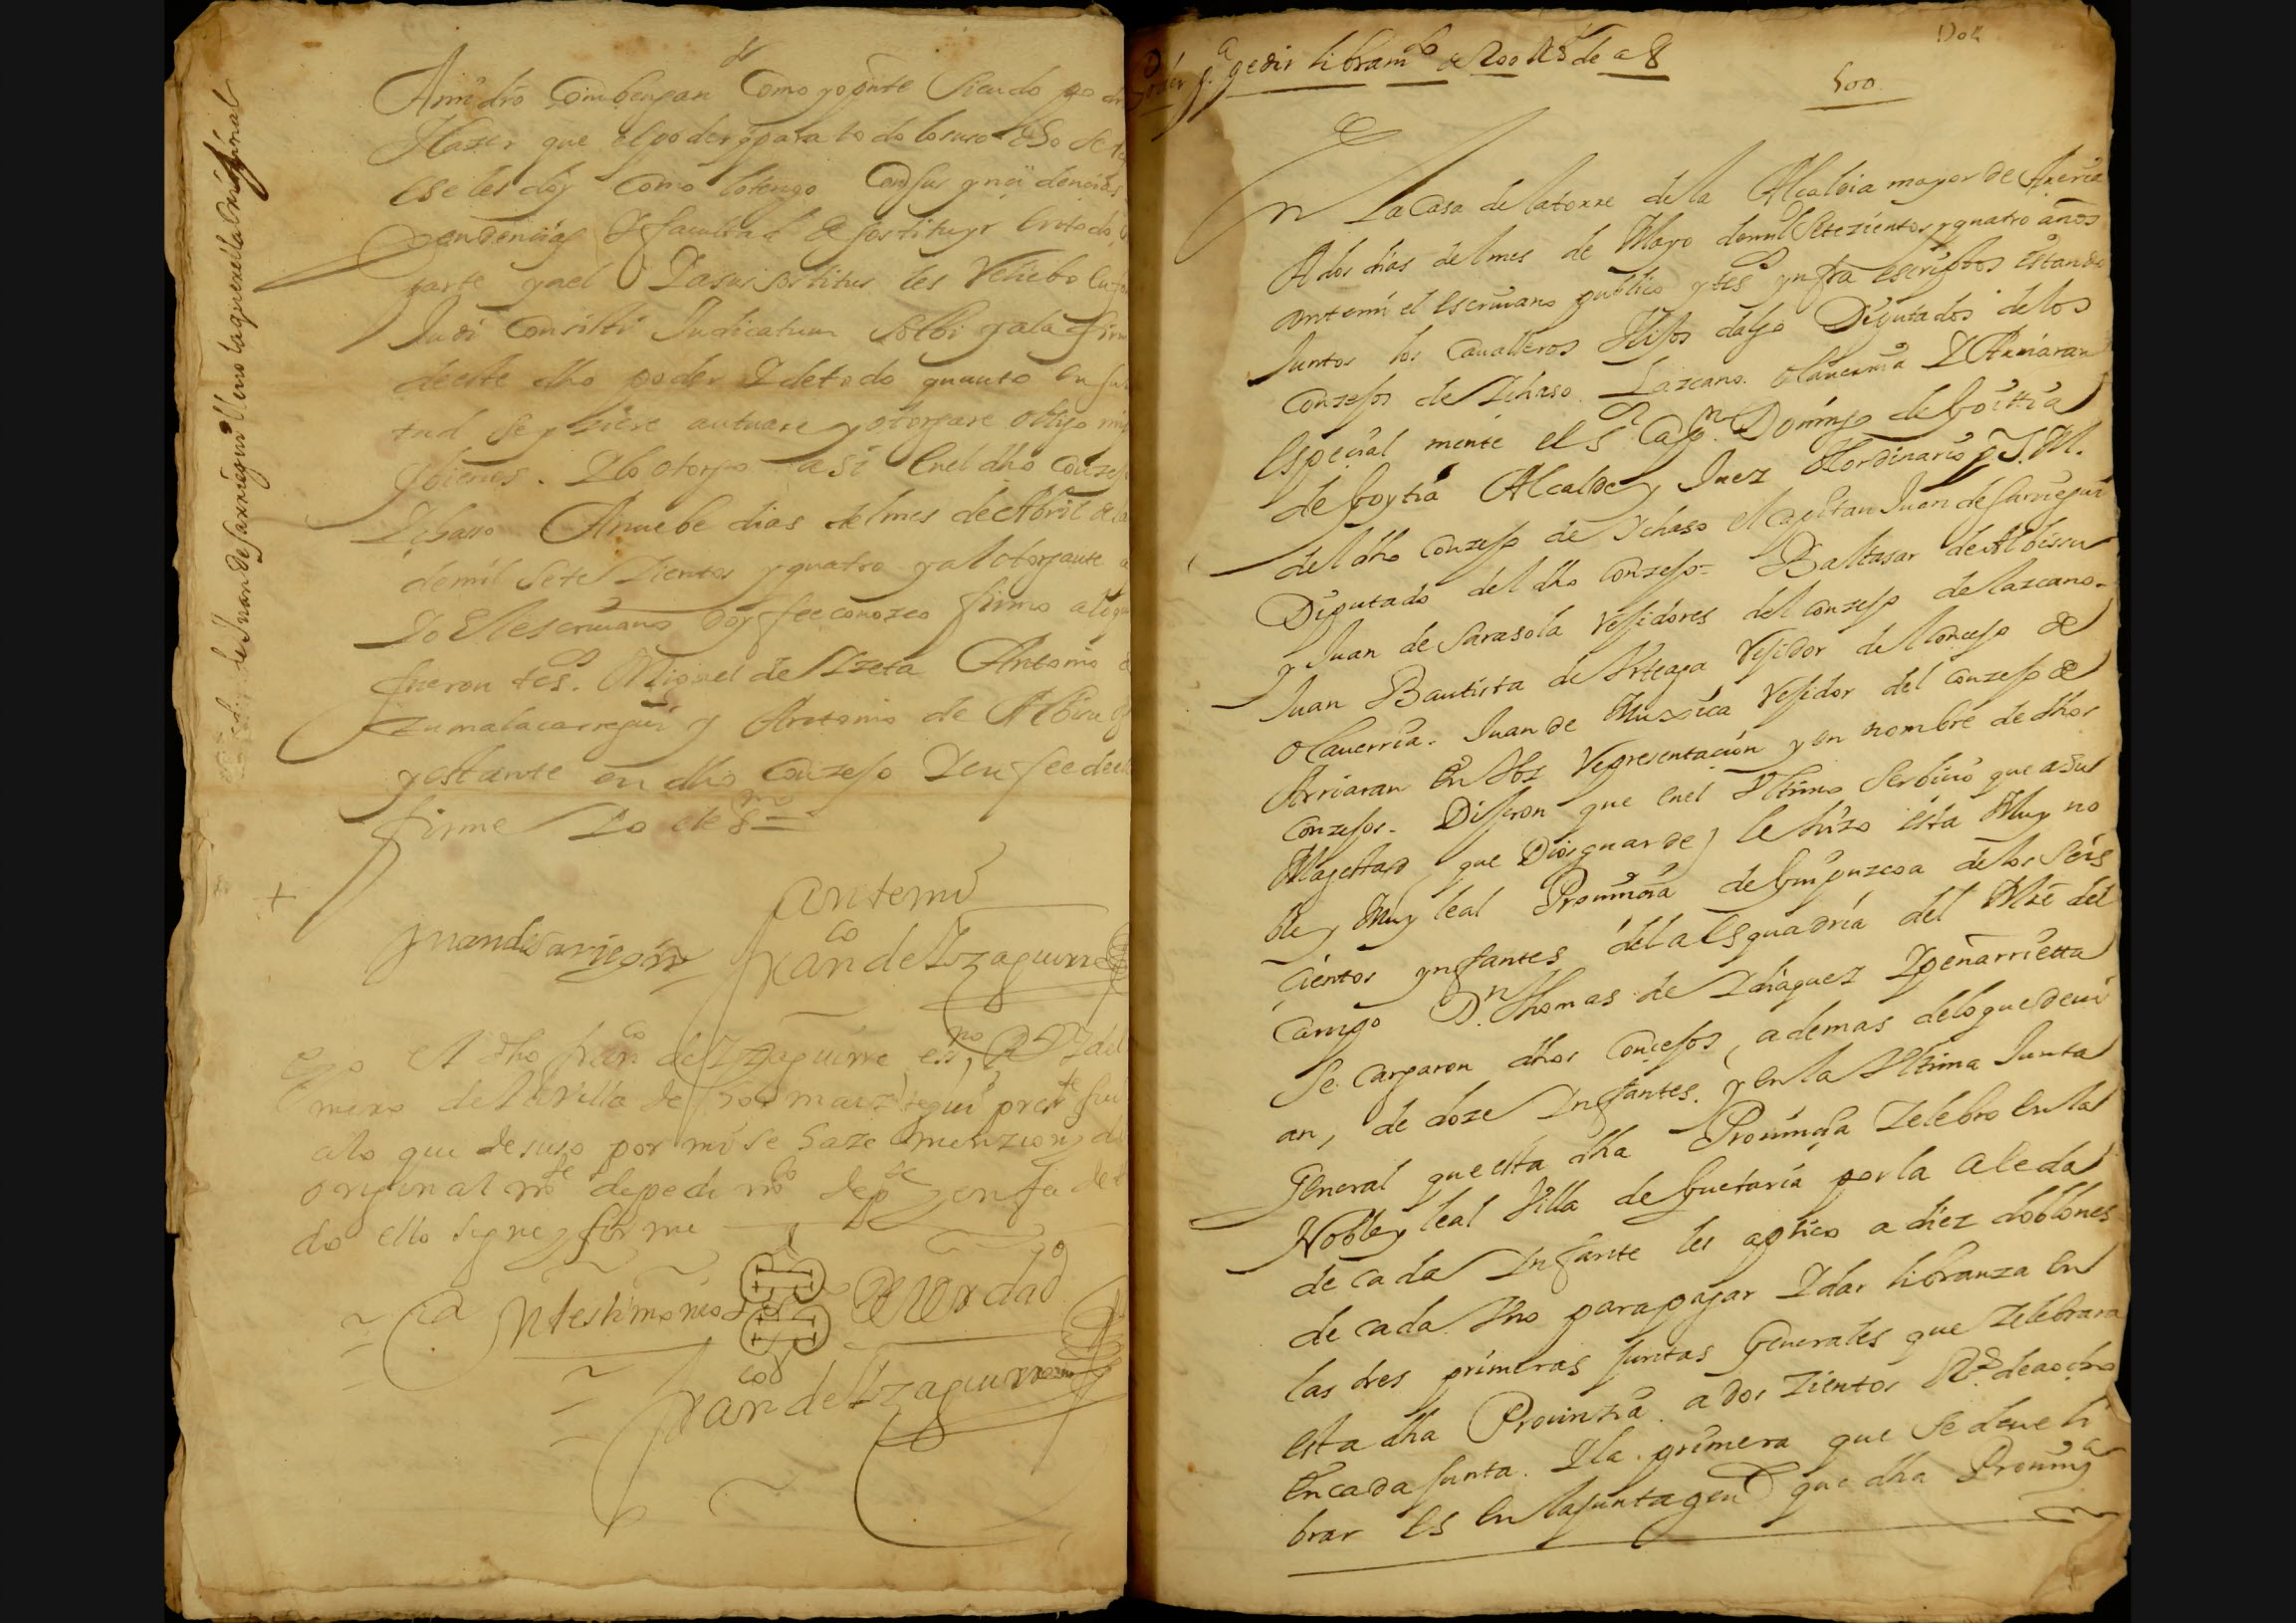 Ami dro combengan Como yo pnte Siendo
Hazer que el poder q para todo lo suso dho se
ese les doy como lo tengo Con sus ynçidencias
pendencias y facultad de sostituyr en todo
parte y a el y a sus sostitus les Reliebo
Judiçi Consisti Judicatum Solbi y a la firm
de este dho poder y de todo quanto en su
tud se yziere autuare y otorgare obligo mi
bienes. y lo otorgo asi en el dho conzejo
Ychasso A nuebe dias del mes de Abril de
de mil Sete Zientos y quatro y al otorgante
Yo El escriuano doy fee conozco firmo
fueron tes. Miguel de Yzeta Antonio
Zumalacarregui y Antonio de Albisu
y estante en dho Conzejo y en fee de
firme Yo el es no
Juan de Sarriegui
ante mi
Fran co de Yzaguirre
e yo el dho fran co de Yzaguirre es no R l y del
mero de la Villa de Sormaiztegui pres te fui
a lo que de suso por mi se haze menzion y de
original m te de pedi m to de p te y en fe de
do ello signe y firme
En testimonio de Verdad
Fran co de Yzaguirre
Poder p a pedir libram to de 200 Rs de a 8
500
En La Casa de la torre de la Alcaldia mayor de Areria
A dos dias del mes de Mayo de mil Setezientos y quatro años
ante mi el escriuano publico y tes ynfra escriptos estando
Juntos los Caualleros Hijos dalgo Diputados de los
Conzejos de Ychaso Lazcano. Olauerria y Arriaran
espeçial mente el S r Cap n Domingo de Goittia
de Goytia Alcalde y Juez Hordinario p S. M.
del dho Conzejo de Ychaso el Capitan Juan de Sarriegui
Diputado del dho Conzejo = Baltasar de Albissu
y Juan de Sarasola Rejidores del Conzejo de Lazcano.
Juan Bautista de Arteaga Rejidor del Conçejo de
Olauerria. Juan de Muxica Rejidor del Conzejo de
Arriaran En dha Representaçion y en nombre de dhos
Conzejos. Dijeron que en el Ultimo Serbicio que a Su
Magestad que Dios guarde) le hizo esta Muy no
ble y Muy leal Prouinçia de Guipuzcoa de los Seis
cientos ynfantes de la esquadria del Mre del
Campo D. n Thomas de Ydiaquez Ypeñarrietta
se cargaron dhos Conçejos, ademas de lo que deui
an, de doze Ynfantes. y en la Ultima Junta
General que esta dha Prouinçia Zelebro en la
Noble y leal Villa de Guetaria por la aleda
de cada Infante les aplico a diez doblones
de cada Uno para pagar y dar libranza en
las tres primeras Juntas Generales que Zelebrara
esta dha Prouinzia. a dos Zientos Rs. de a ocho
en cada Junta. y la primera que se deue li
brar es en la Junta gen l que dha Prouinç a